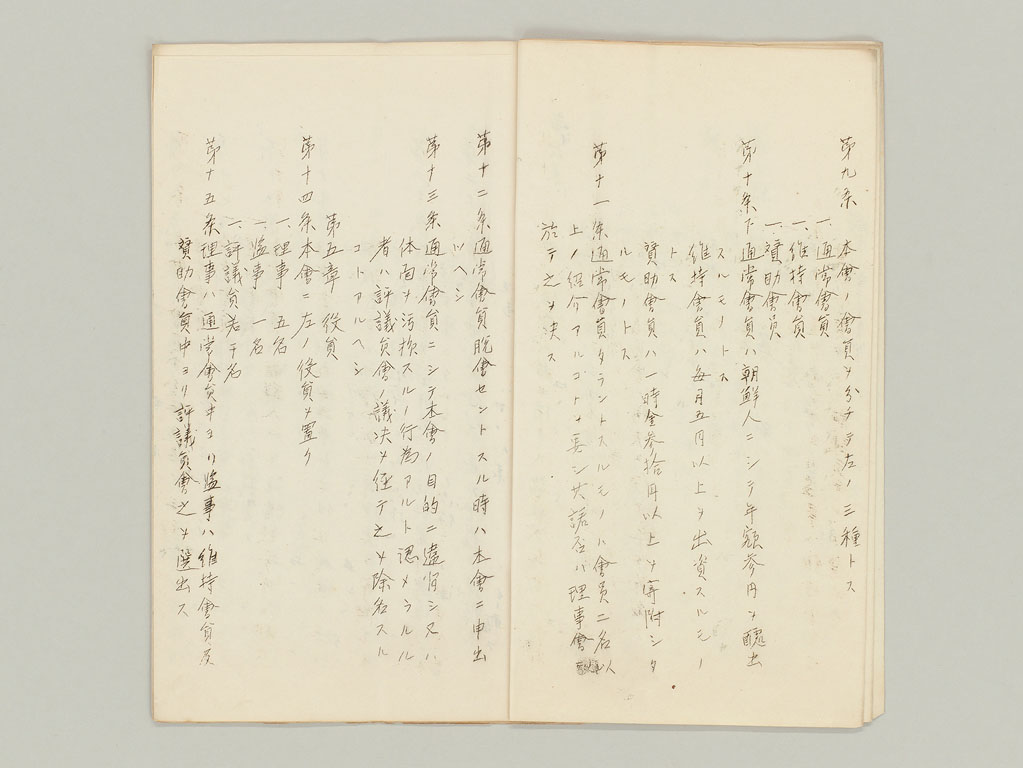 第九条
本會ノ會員ヲ分チテ左ノ三種トス
一、通常會員
一、維持會員
一、賛助會員
第十条 通常會員ハ朝鮮人ニシテ年額参円ヲ醵出
スルモノトス
維持會員ハ毎月五円以上ヲ出資スルモノ
トス
賛助會員ハ一時金参拾円以上ヲ寄附シタ
ルモノトス
第十一条通常會員タラントスルモノハ會員二名以
上ノ紹介アルコトヲ要シ其諾否ハ理事會
於テ之ヲ决ス
第十二条通常會員脱會セントスル時ハ本會ニ申出
ツヘシ
第十三条通常會員ニシテ本會ノ目的ニ違背シ又ハ
体面ヲ汚損スルノ行為アルト認メラルル
者ハ評議員會ノ議决ヲ経テ之ヲ除名スル
コトアルヘシ
第五章 役員
第十四条本會ニ左ノ役員ヲ置ク
一、理事 五名
一、監事 一名
一、評議員若干名
第十五条理事ハ通常會員中ヨリ監事ハ維持會員及
賛助會員中ヨリ評議員會之ヲ選出ス